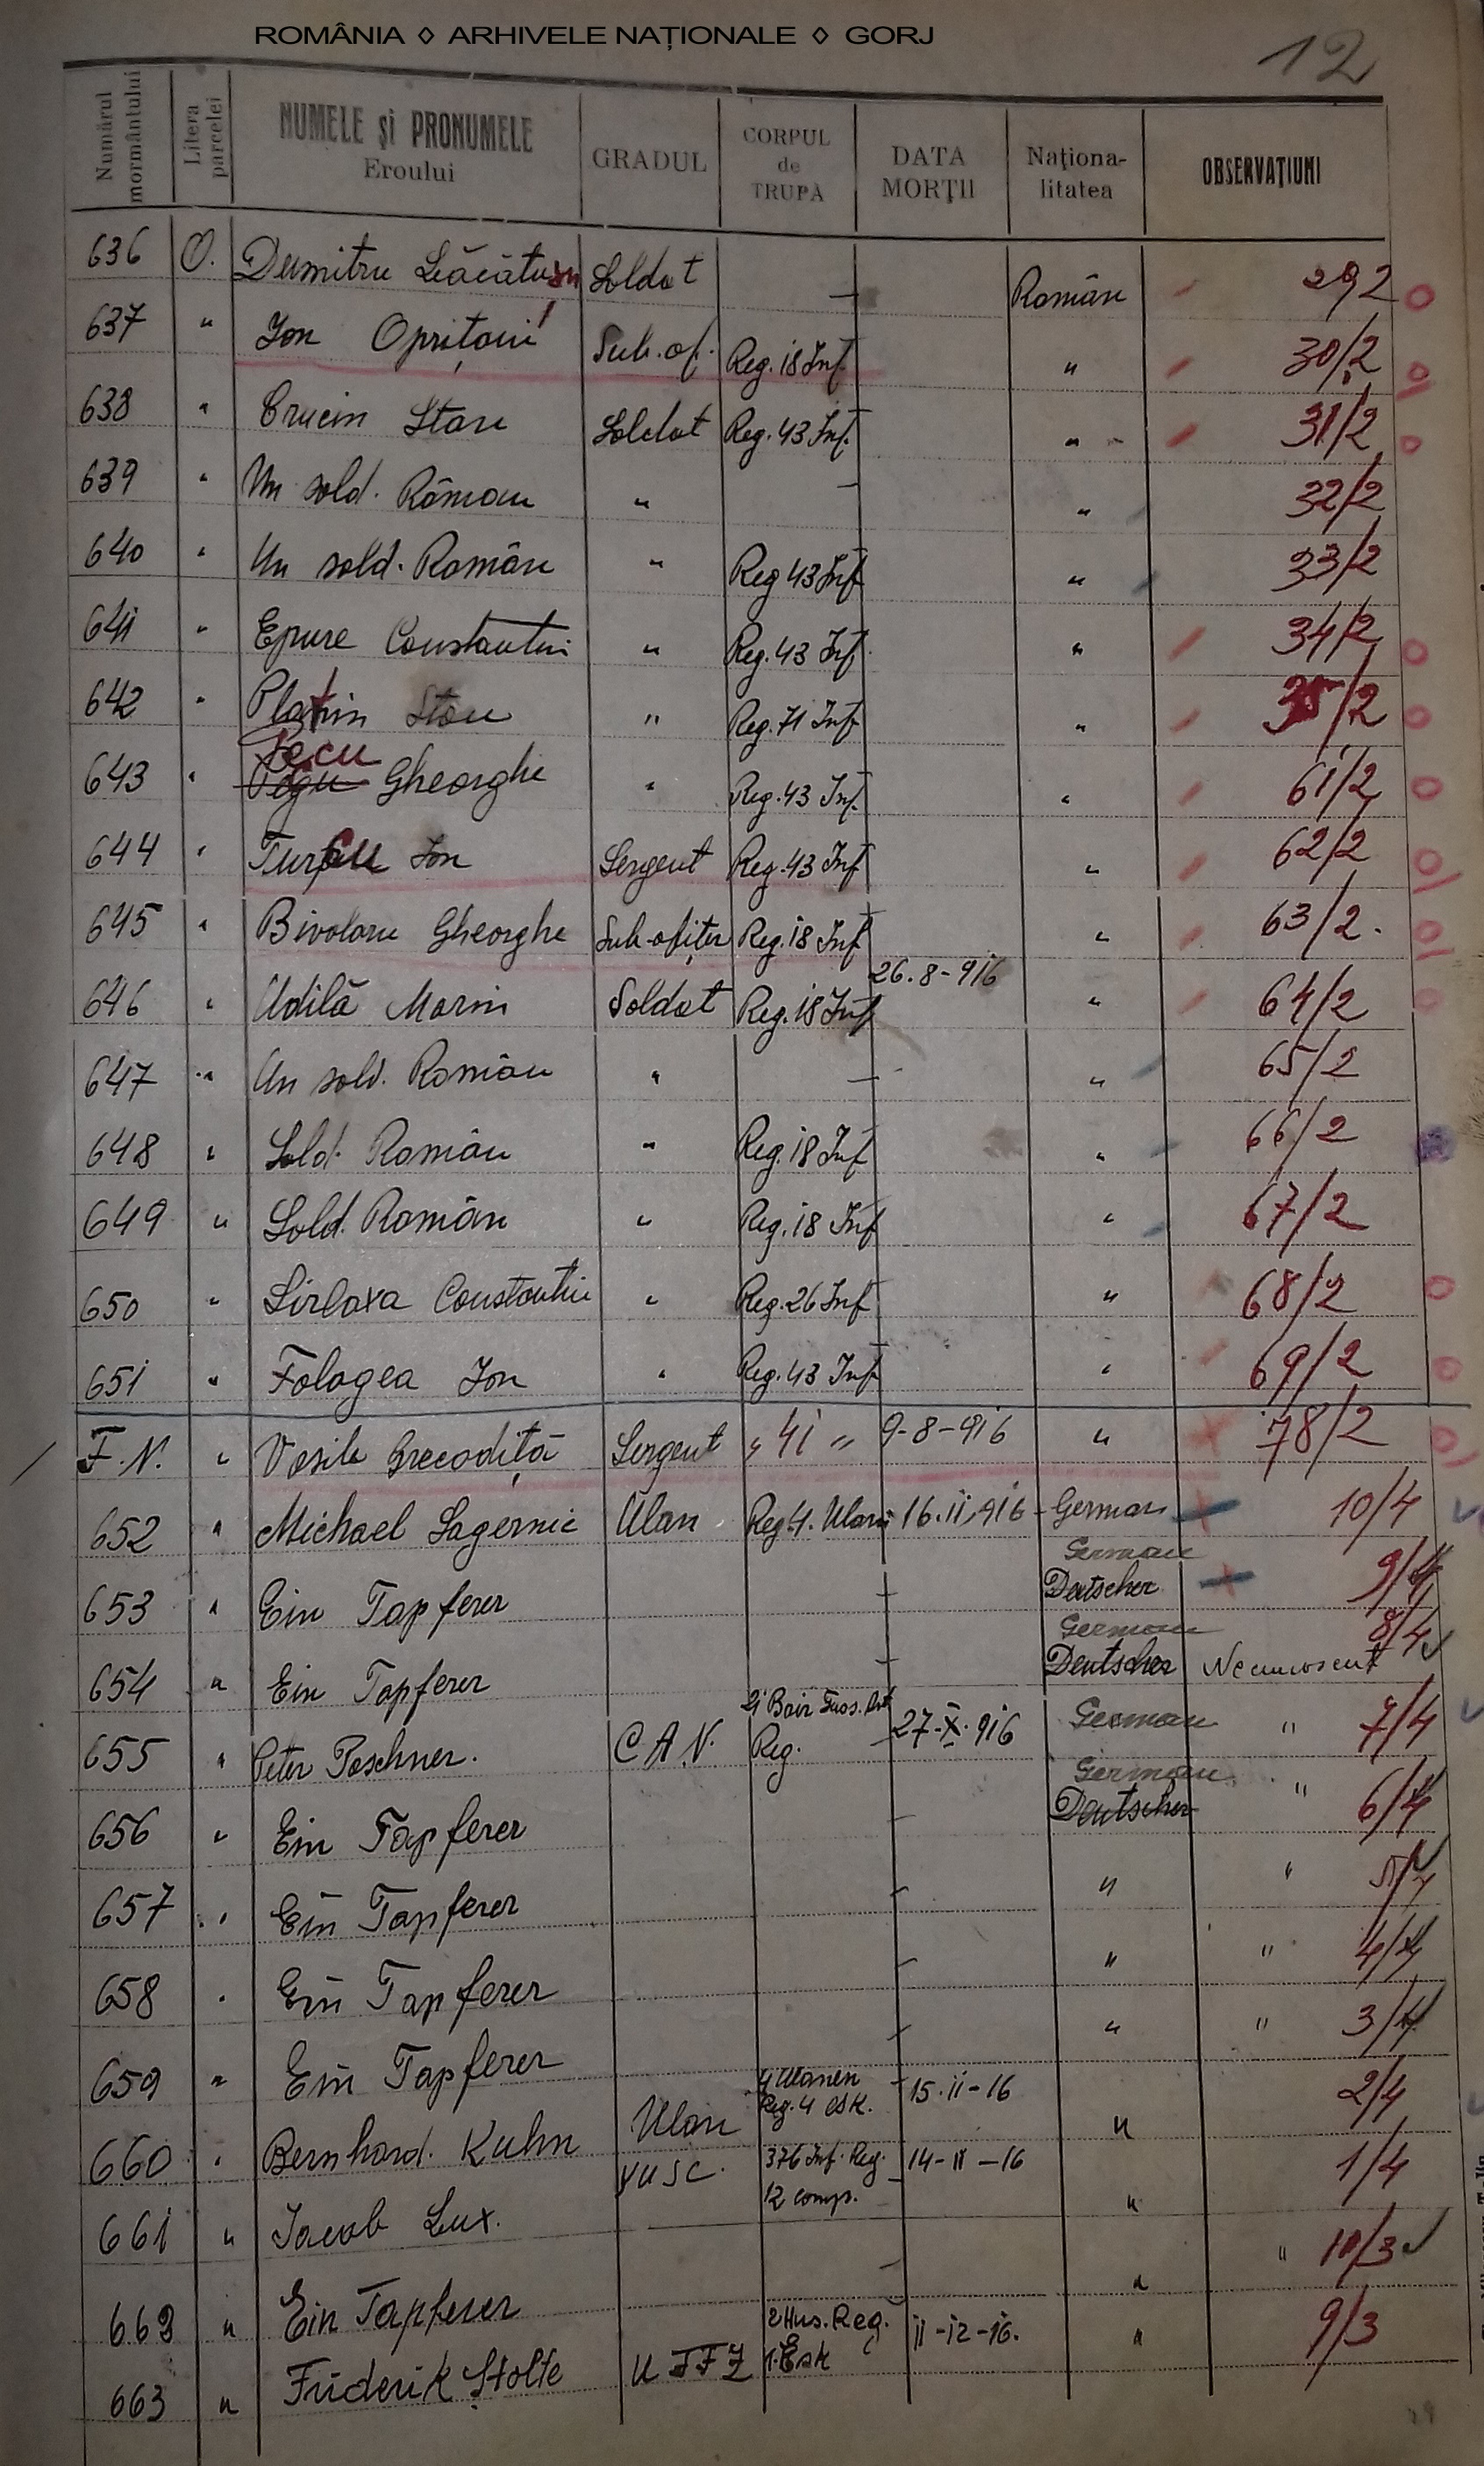 ROMÂNIA ◊ ARHIVELE NAȚIONALE ◊ GORJ
12
Numărul mormântului Litera parcelei NUMELE și PRONUMELE Eroului GRADUL CORPUL de TRUPĂ DATA MORȚII Naționalitatea OBSERVAȚIUNI
636 O. Dumitru Lăcătușu Soldat — Român 29/2
637 " Ion Oprițoiu Sub.of. Reg. 18 Inf. " 30/2
638 " Crucin Stan Soldat Reg. 43 Inf. " 31/2
639 " Un sold. Român " — " 32/2
640 " Un sold. Român " Reg 43 Inf " 33/2
641 " Epure Constantin " Reg. 43 Inf. " 34/2
642 " Platin Stan " Reg. 71 Inf. " 35/2
643 " Pecu Gheorghe " Reg. 43 Inf. " 61/2
644 " Ion Sergent Reg. 43 Inf " 62/2
645 " Bivolaru Gheorghe Sub-ofițer Reg. 18 Inf " 63/2.
646 " Udilă Marin Soldat Reg. 18 Inf 26.8-916 " 64/2
647 " Un sold. Român " — " 65/2
648 " Sold. Român " Reg. 18 Inf " 66/2
649 " Sold. Român " Reg. 18 Inf " 67/2
650 " Sirlaxa Constantin " Reg. 26 Inf " 68/2
651 " Fologea Ion " Reg. 43 Inf " 69/2
F.N. " Vasile Grecodiță Sergent " 41 " 9-8-916 " 78/2
652 " Michael Sagernic Ulan Reg 4. Ulani 16.11.916 German 10/4
653 " Ein Tapferer — German Deutscher 9/4
654 " Ein Tapferer — German Deutscher Necunoscut 8/4
655 " Peter Poschner. C A N. Reg. 27-X-916 German " 7/4
656 " Ein Tapferer — German Deutscher " 6/4
657 " Ein Tapferer — " " 5/4
658 " Ein Tapferer — " " 4/4
659 " Ein Tapferer — " " 3/4
660 " Bernhard. Kuhn Ulan 4 Ulanen Reg. 4 esk. 15.11-16 " 2/4
661 " Iacob Lux. 376 Inf. Reg. 12 comp. 14-11-16 " 1/4
662 " Ein Tapferer — " " 10/3
663 " Friderik Stolte U F F Z 2 Hus. Reg. 1. Esk 11-12-16. " 9/3